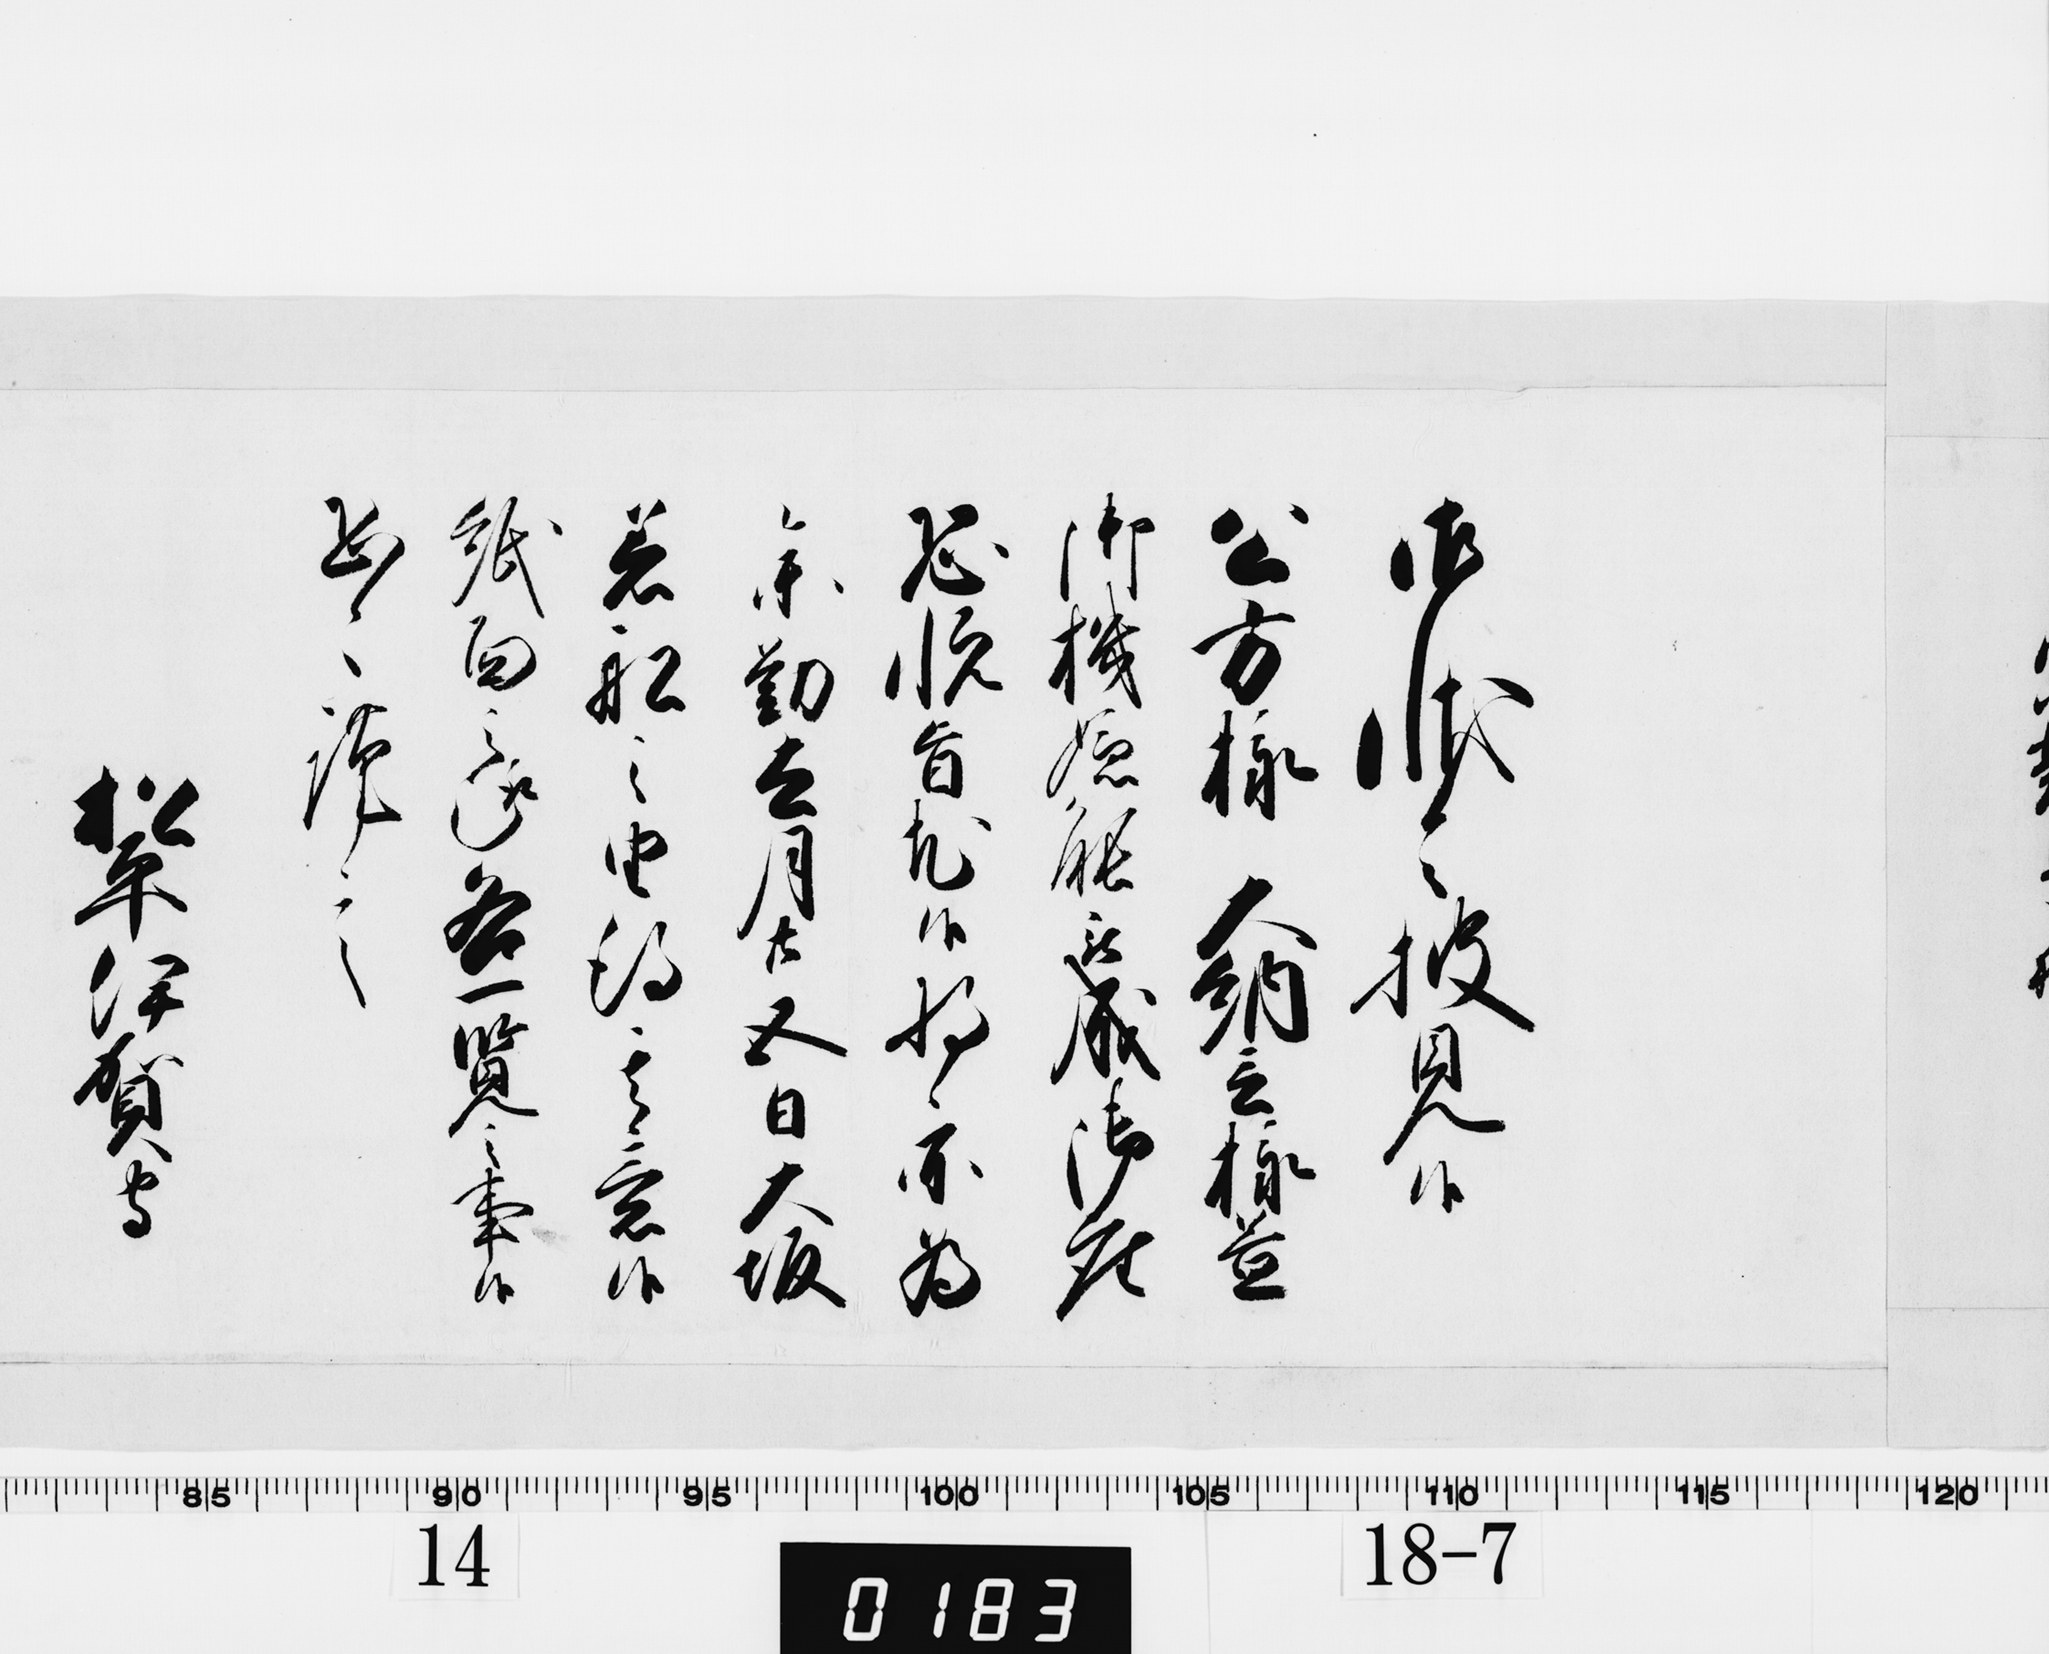 御状令披見候
公方様 大納言様益
御機嫌能被成御座
恐悦旨尤候将亦為
参勤去月廿五日大坂
着船之由得其意候
紙面之趣各一覧之事候
恐々謹言
松平伊賀守
85 90 95 100 105 110 115 120
14
18-7
0183